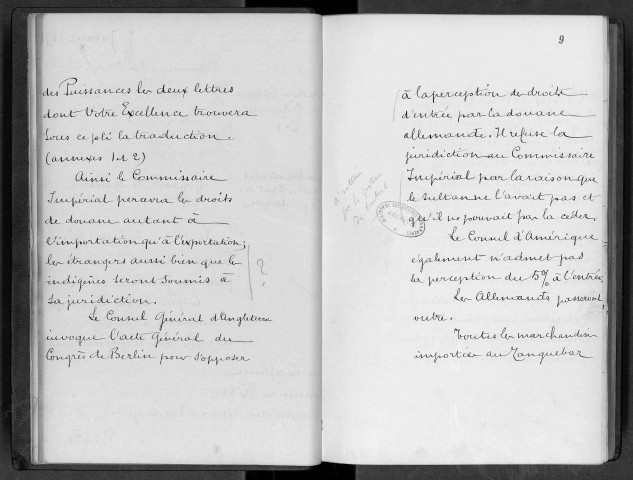 des Puissances les deux lettres
dont Votre Excellence trouvera
sous ce pli la traduction.
(annexes 1 et 2)
Ainsi le Commissaire
Impérial percevra les droits
de douane autant à
l'importation qu'à l'exportation;
les étrangers aussi bien que les
indigènes seront soumis à
sa juridiction.
?
Le Consul Général d'Angleterre
invoque l'acte Général du
Congrès de Berlin pour s'opposer
9
à la perception des droits
d'entrée par la douane
allemande. Il refuse la
juridiction au Commissaire
Impérial par la raison que
le Sultan ne l'avait pas et
qu'il ne pouvait pas la céder.
Le Consul d'Amérique
également n'admet pas
la perception du 5% à l'entrée.
Les Allemands passeront
outre.
Toutes les marchandises
importées au Zanguebar